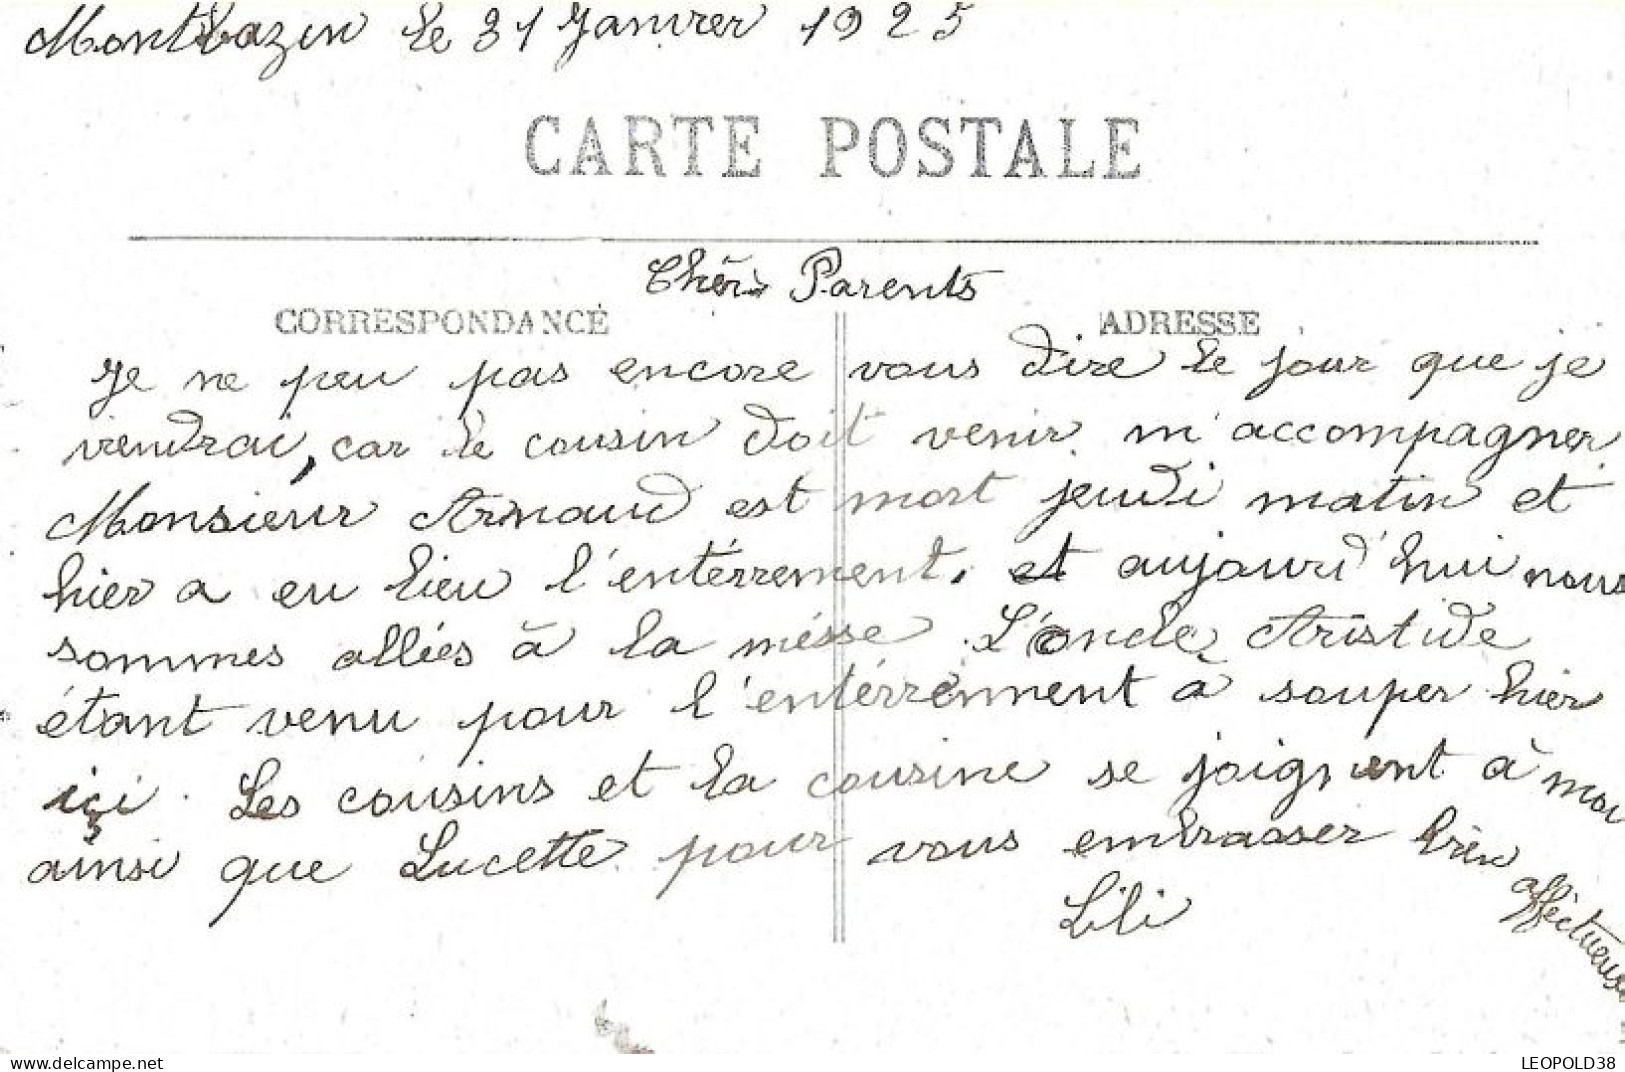 Montbazin le 31 Janvier 1925
CARTE POSTALE
Chèrs Parents
CORRESPONDANCE
ADRESSE
Je ne peu pas encore vous dire le jour que je
viendrai, car le cousin doit venir m'accompagner
Monsieur Arnaud est mort jeudi matin et
hier a eu lieu l'entérrement. et aujourd'hui nous
sommes allés à la mésse. L'oncle Aristide
étant venu pour l'entérrement à souper hier
içi. Les cousins et la cousine se joignent à moi
ainsi que Lucette pour vous embrasser bien
affectueuse
Lili
www.delcampe.net
LEOPOLD38